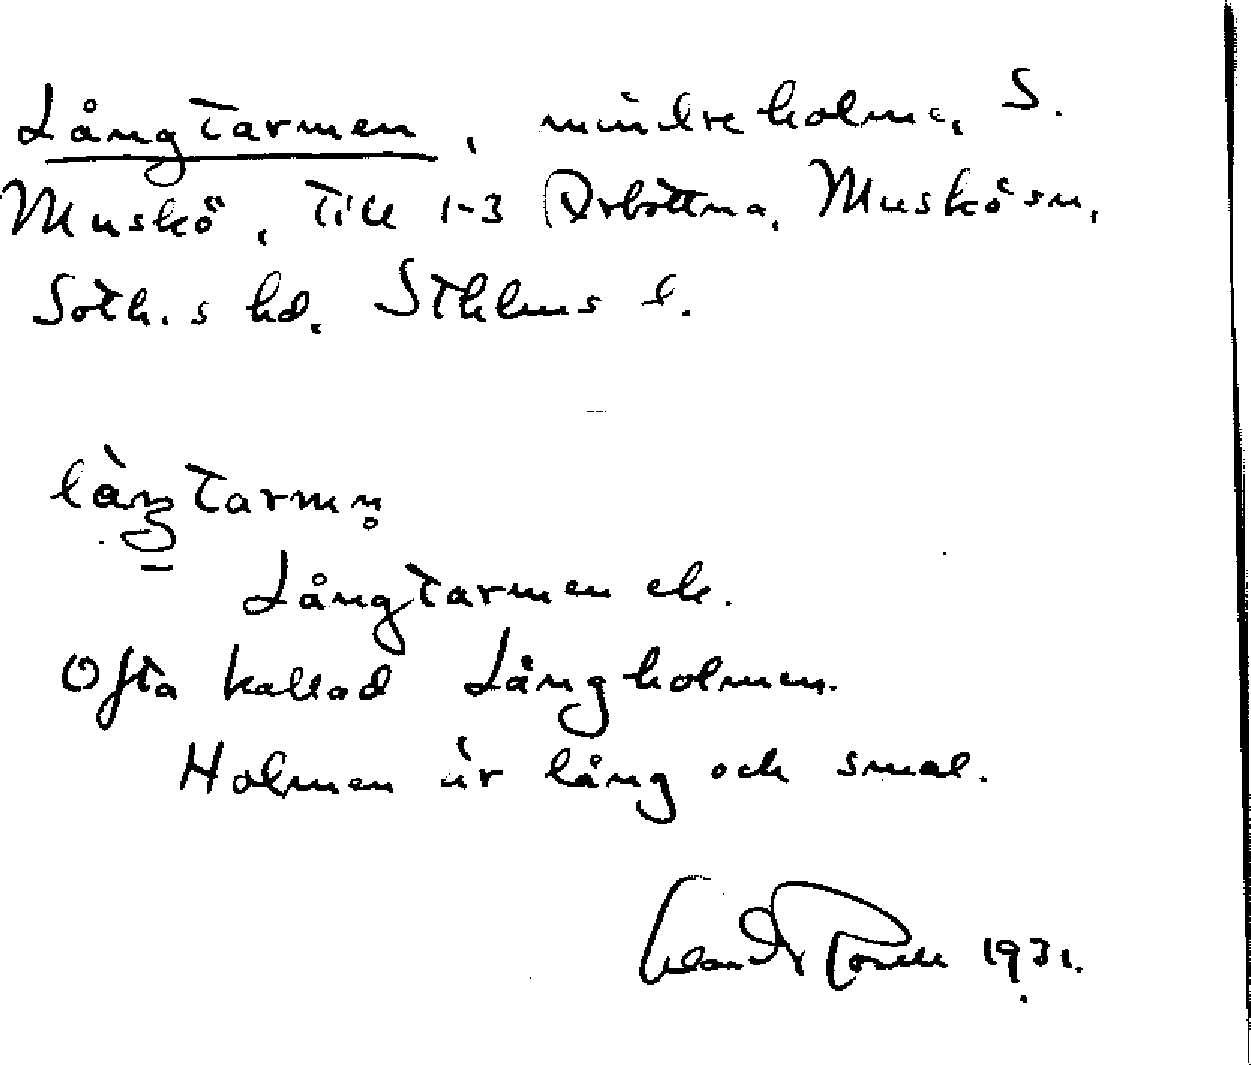 Långtarmen, mindre holme, S.
Muskö, till 1-3 Arbottna, Muskö sn,
Soth.s hd. Sthlms l.
làŋtarmn̥
Långtarmen el.
Ofta kallad Långholmen.
Holmen är lång och smal.
1931.